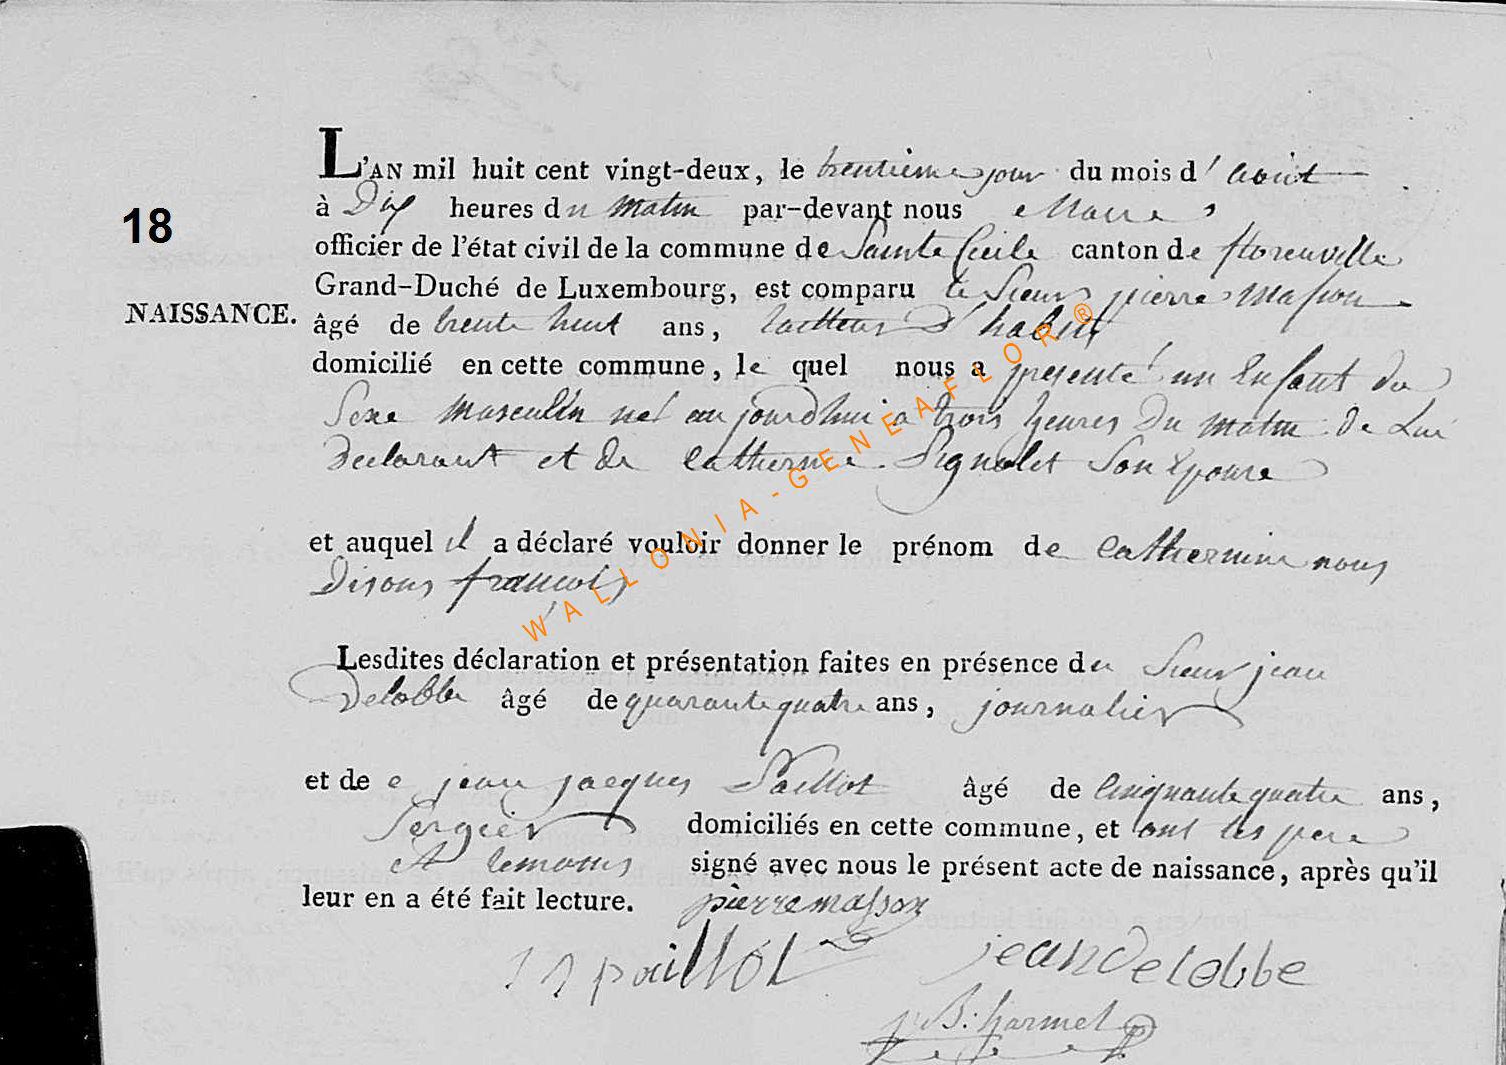 18
NAISSANCE.
L'AN mil huit cent vingt-deux, le trentieme jour du mois d' Aout
à Dix heures du matin par-devant nous Maire,
officier de l'état civil de la commune de Sainte Cecile canton de florenville
Grand-Duché de Luxembourg, est comparu le Sieur pierre masson
âgé de trente huit ans, tailleur D'habit
domicilié en cette commune, le quel nous a presenté un Enfant du
Sexe masculin né aujourdhui a trois heures Du matin De Lui
Declarant et de Catherine Pignolet Son Epouse
et auquel il a déclaré vouloir donner le prénom de Catherinne nous
Disons françois
Lesdites déclaration et présentation faites en présence du Sieur jean
Delobbe âgé de quarante quatre ans, journalier
et de jean jacques Paillot âgé de Cinquante quatre ans,
Sergier domiciliés en cette commune, et ont les pere
et temoins signé avec nous le présent acte de naissance, après qu'il
leur en a été fait lecture. pierre masson
J J paillot jean Delobbe
j B: harmel
WALLONIA-GENEAFLOR ®